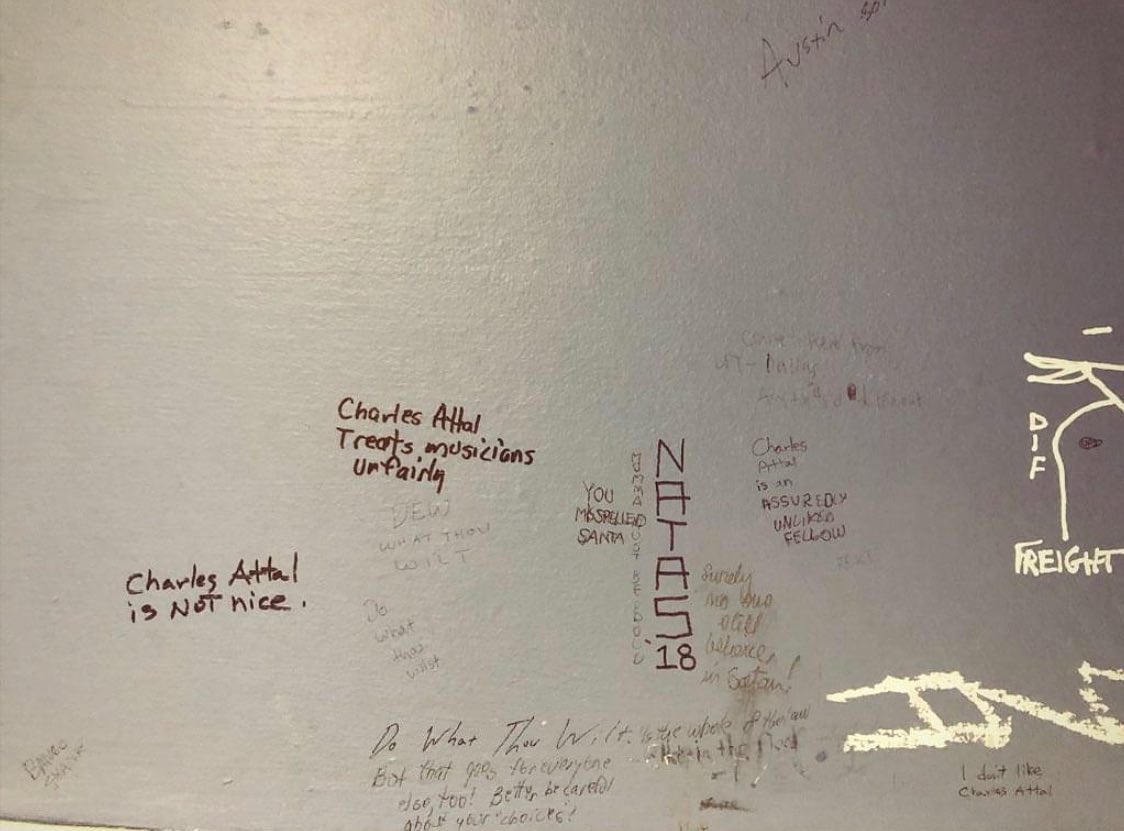 Austin
Come here from
UT-Dallas
Charles Attal
Treats musicians
unfairly
DEW
WHAT THOU
WILT
Charles Attal
is NOT nice.
Do
what
thou
wilst
YOU
MISSPELLED
SANTA
NATAS
'18
Charles
Attal
is an
ASSUREDLY
UNLIKED
FELLOW
Surely
no one
still
believes
in Satan!
K
DIF
FREIGHT
Do What Thou Wilt. is the whole of the law
But that goes for everyone
else, too! Better be careful
about your "choices"!
I don't like
Charles Attal